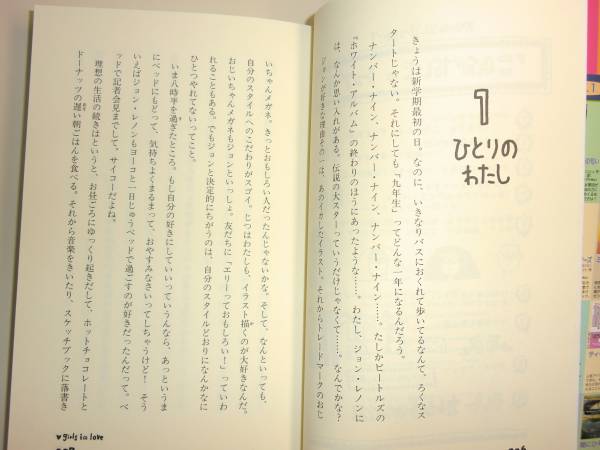 1
ひとりの
わたし
きょうは新学期最初の日。なのに、いきなりバスにおくれて歩いてるなんて、ろくなス
タートじゃない。それにしても「九年生」ってどんな一年になるんだろう。
ナンバー・ナイン、ナンバー・ナイン、ナンバー・ナイン……。たしかビートルズの
『ホワイト・アルバム』の終わりのほうにあったような……。わたし、ジョン・レノンに
は、なんか思い入れがある。伝説の大スターっていうだけじゃなくて……、なんでかな?
ジョンが好きな理由その一は、あのイカしたイラスト。それからトレードマークのおじ
いちゃんメガネ。きっとおもしろい人だったんじゃないかな。そして、なんといっても、
自分のスタイルへのこだわりがスゴイ。じつはわたしも、イラスト描くのが大好きなんだ。
おじいちゃんメガネもジョンといっしょ。友だちに「エリーっておもしろい!」っていわ
れることもある。でもジョンと決定的にちがうのは、自分のスタイルどおりになんかなに
ひとつやれてないってこと。
いま八時半を過ぎたところ。もし自分の好きにしていいっていうんなら、あっというま
にベッドにもどって、気持ちよくまるまって、おやすみなさいってしちゃうけど! そう
いえばジョン・レノンもヨーコと一日じゅうベッドで過ごすのが好きだったんだって。ベ
ッドで記者会見までして、サイコーだよね。
理想の生活の続きはというと、お昼ごろにゆっくり起きだして、ホットチョコレートと
ドーナッツの遅い朝ごはんを食べる。それから音楽をきいたり、スケッチブックに落書き
♥ girls in love